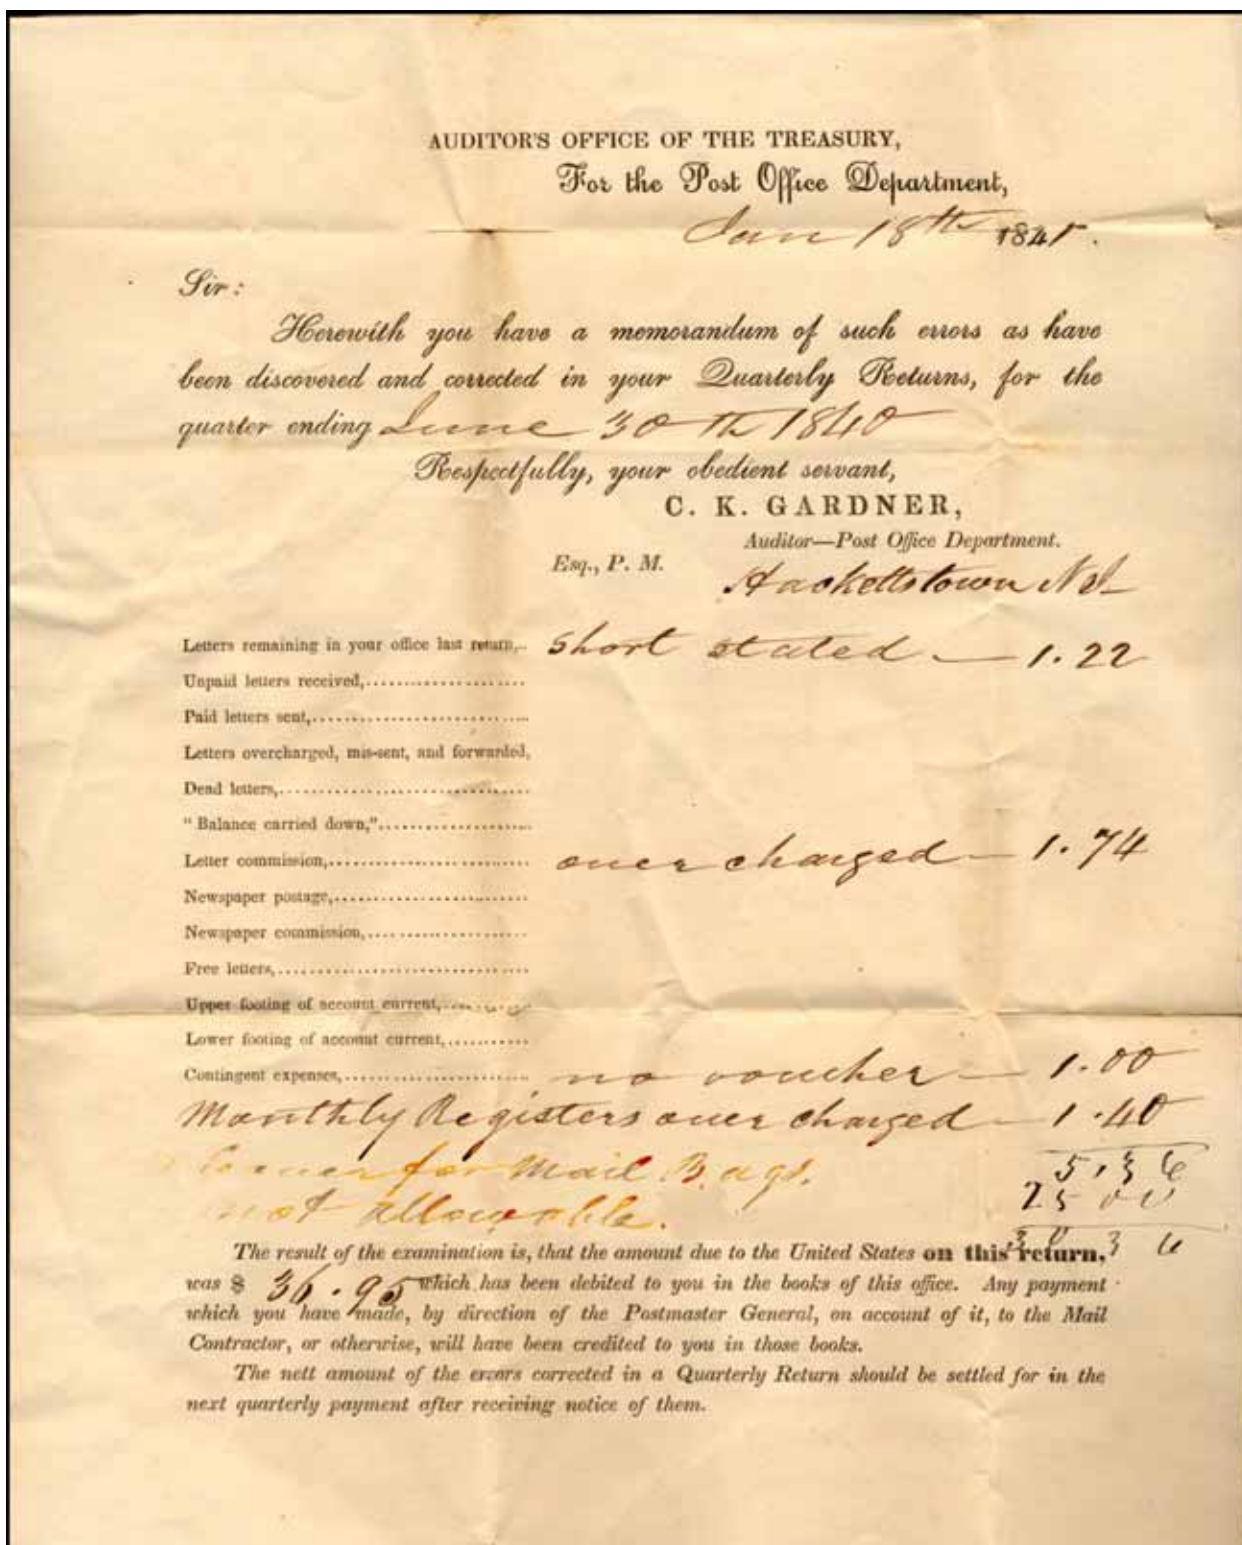 AUDITOR'S OFFICE OF THE TREASURY,
For the Post Office Department,
Jan 18th 1841.
Sir:
Herewith you have a memorandum of such errors as have
been discovered and corrected in your Quarterly Returns, for the
quarter ending June 30th 1840
Respectfully, your obedient servant,
C. K. GARDNER,
Auditor—Post Office Department.
Esq., P. M.
Hackettstown NJ
Letters remaining in your office last return,.. short stated — 1.22
Unpaid letters received,....................
Paid letters sent,...........................
Letters overcharged, mis-sent, and forwarded,
Dead letters,...............................
"Balance carried down,"....................
Letter commission,......................... over charged — 1.74
Newspaper postage,........................
Newspaper commission,...................
Free letters,...............................
Upper footing of account current,..........
Lower footing of account current,..........
Contingent expenses,...................... no voucher — 1.00
Monthly Registers over charged — 1.40
for Mail Bags. 5.36
not allowable. 25 00
30 36
The result of the examination is, that the amount due to the United States on this return,
was $ 36.95 which has been debited to you in the books of this office. Any payment
which you have made, by direction of the Postmaster General, on account of it, to the Mail
Contractor, or otherwise, will have been credited to you in those books.
The nett amount of the errors corrected in a Quarterly Return should be settled for in the
next quarterly payment after receiving notice of them.